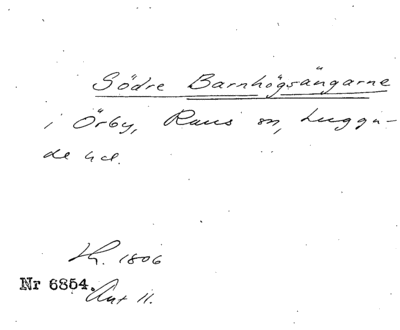 Södre Barnhögsängarne
i Örby, Raus sn, Luggu-
de hd.
Lh. 1806
Nr 6854. Akt 11.